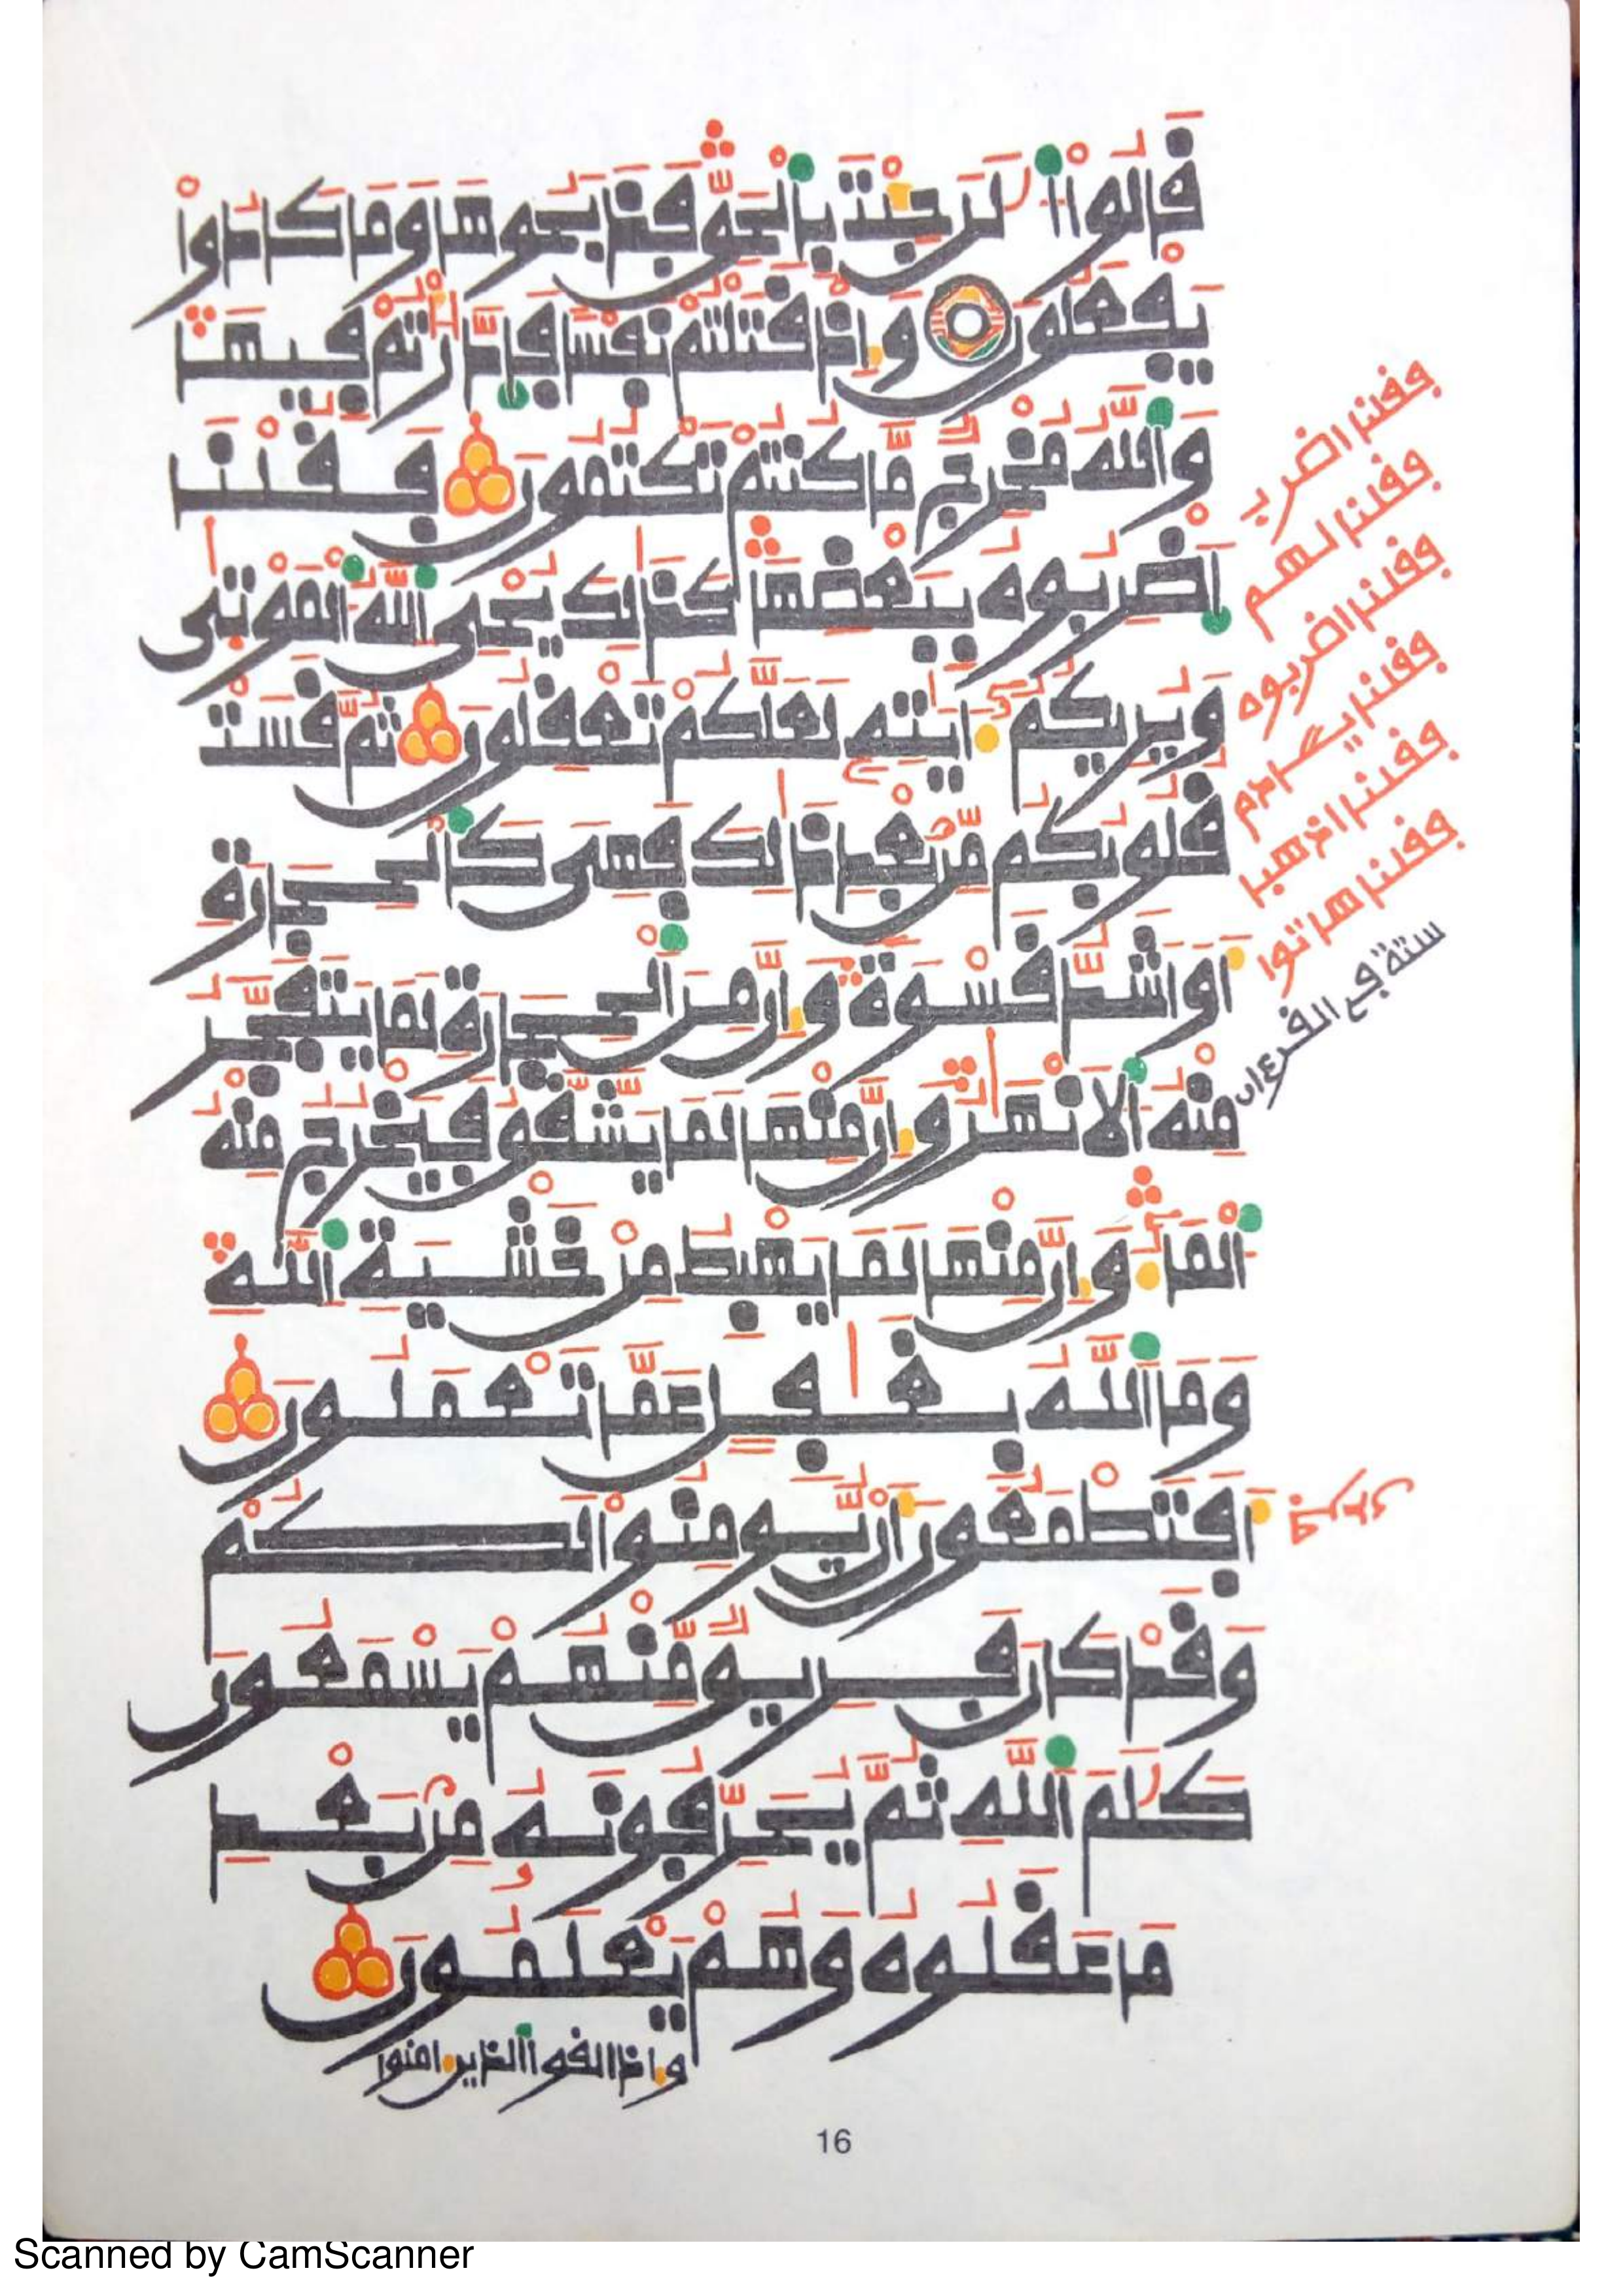 قَالُوا۟ ٱلَٰنَ جِئْتَ بِٱلْحَقِّ فَذَبَحُوهَا وَمَا كَادُوا۟
يَفْعَلُونَ وَإِذْ قَتَلْتُمْ نَفْسًا فَٱدَّٰرَٰٔتُمْ فِيهَا
وَٱللَّهُ مُخْرِجٌ مَّا كُنتُمْ تَكْتُمُونَ فَقُلْنَا
ٱضْرِبُوهُ بِبَعْضِهَا كَذَٰلِكَ يُحْىِ ٱللَّهُ ٱلْمَوْتَىٰ
وَيُرِيكُمُۥٓ ءَايَٰتِهِۦ لَعَلَّكُمْ تَعْقِلُونَ ثُمَّ قَسَتْ
قُلُوبُكُم مِّنۢ بَعْدِ ذَٰلِكَ فَهِىَ كَٱلْحِجَارَةِ
أَوْ أَشَدُّ قَسْوَةً وَإِنَّ مِنَ ٱلْحِجَارَةِ لَمَا يَتَفَجَّرُ
مِنْهُ ٱلَانْهَٰرُ وَإِنَّ مِنْهَا لَمَا يَشَّقَّقُ فَيَخْرُجُ مِنْهُ
ٱلْمَآءُ وَإِنَّ مِنْهَا لَمَا يَهْبِطُ مِنْ خَشْيَةِ ٱللَّهِ
وَمَا ٱللَّهُ بِغَٰفِلٍ عَمَّا تَعْمَلُونَ
أَفَتَطْمَعُونَ أَنْ يُّومِنُوا۟ لَكُمْ
وَقَدْ كَانَ فَرِيقٌ مِّنْهُمْ يَسْمَعُونَ
كَلَٰمَ ٱللَّهِ ثُمَّ يُحَرِّفُونَهُۥ مِنۢ بَعْدِ
مَا عَقَلُوهُ وَهُمْ يَعْلَمُونَ
وإذا لقوا ٱلذين ءامنوا
فقلنا اضرب
فقلنا لهم
فقلنا اضربوه
فقلنا يـٰـادم
فقلنا اذهبا
فقلنا هاتوا
ستة في القرءان
16
Scanned by CamScanner